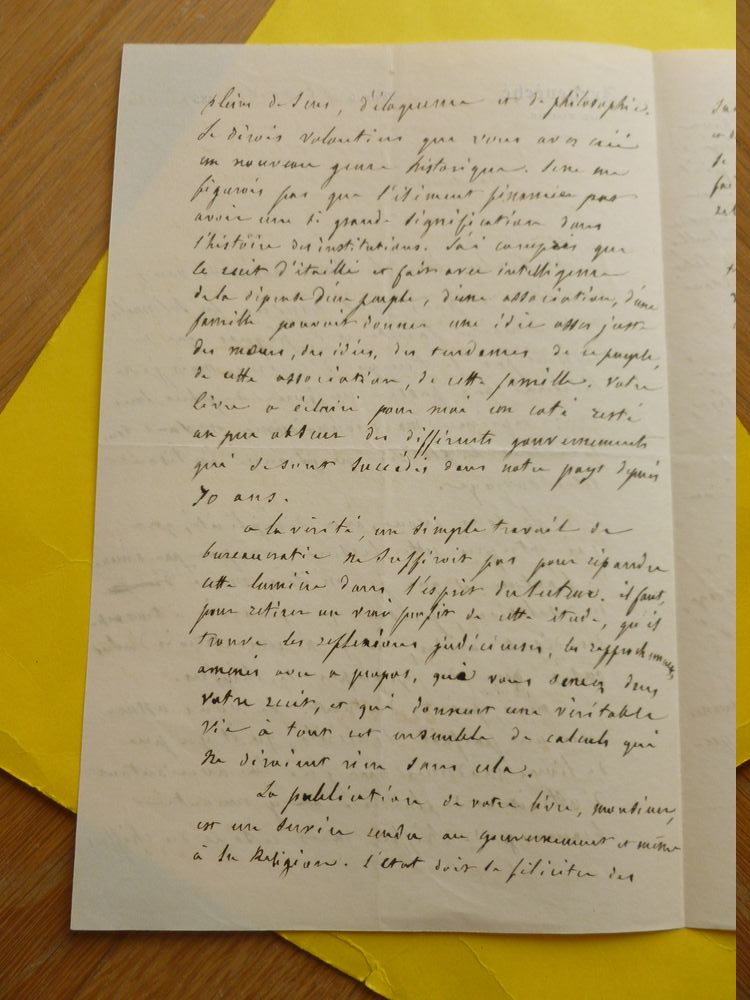 plein de sens, d'éloquence et de philosophie.
Je dirois volontiers que vous avez créé
un nouveau genre historique. Je ne me
figurois pas que l'élément financier put
avoir une si grande signification dans
l'histoire des institutions. J'ai compris que
le récit détaillé et fait avec intelligence
de la dépense d'un peuple, d'une association, d'une
famille pouvoit donner une idée assez juste
des mœurs, des idées, des tendances de ce peuple,
de cette association, de cette famille. Votre
livre a éclairé pour moi un coté resté
un peu obscur des différents gouvernements
qui se sont succédés dans notre pays depuis
70 ans.
a la vérité, un simple travail de
bureaucratie ne suffiroit pas pour répandre
cette lumière dans l'esprit du lecteur. il faut,
pour retirer un vrai profit de cette étude, qu'il
trouve les reflexions judicieuses, les rapprochements
amenés avec a propos, que vous semez dans
votre récit, et qui donnent une véritable
vie à tout cet ensemble de calculs qui
ne diroient rien sans cela.
La publication de votre livre, monsieur,
est un service rendu au gouvernement et même
à la Religion. L'état doit se féliciter des